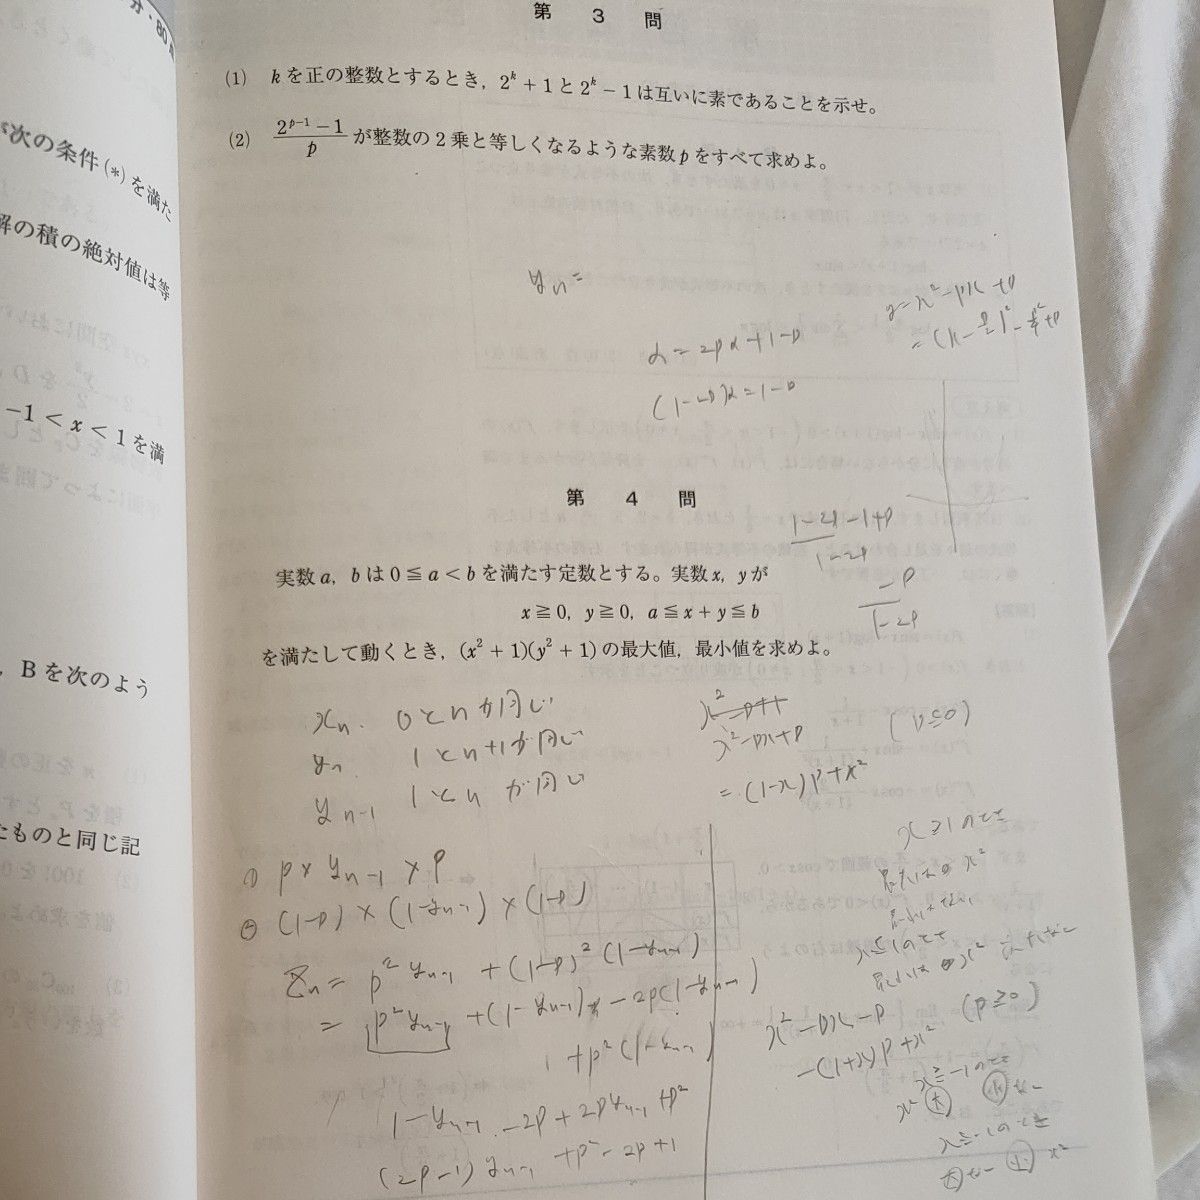 が次の条件(*)を満た
解の積の絶対値は等
-1 < x < 1 を満
, B を次のよう
たものと同じ記
第 3 問
(1) kを正の整数とするとき, 2^k + 1 と 2^k - 1 は互いに素であることを示せ。
(2) (2^{p-1} - 1)/p が整数の2乗と等しくなるような素数pをすべて求めよ。
y_n =
α = 2pα + 1 - p
(1-2p)α = 1-p
y = x² - px + p
= (x - p/2)² - p²/4 + p
第 4 問
(1-2p-1+p)/(1-2p)
-p/(1-2p)
実数 a, b は 0 ≦ a < b を満たす定数とする。実数 x, y が
x ≧ 0, y ≧ 0, a ≦ x + y ≦ b
を満たして動くとき, (x² + 1)(y² + 1) の最大値, 最小値を求めよ。
x_n. 0とnが同じ
y_n 1とn+1が同じ
y_{n-1} 1とnが同じ
① p × y_{n-1} × p
② (1-p) × (1-y_{n-1}) × (1-p)
Z_n = p² y_{n-1} + (1-p)² (1-y_{n-1})
= p² y_{n-1} + (1-y_{n-1}) - 2p(1-y_{n-1})
+ p² (1-y_{n-1})
1 - y_{n-1} - 2p + 2p y_{n-1} + p²
(2p-1) y_{n-1} + p² - 2p + 1
x² - px + p (p≦0)
= (1-x)p + x²
x ≧ 1 のとき
x ≦ 1 のとき
x² - px - p (p ≧ 0)
-(1+x)p + x²
x ≧ -1 のとき
x² 大 小 なし
x ≦ -1 のとき
大 なし 小 x²